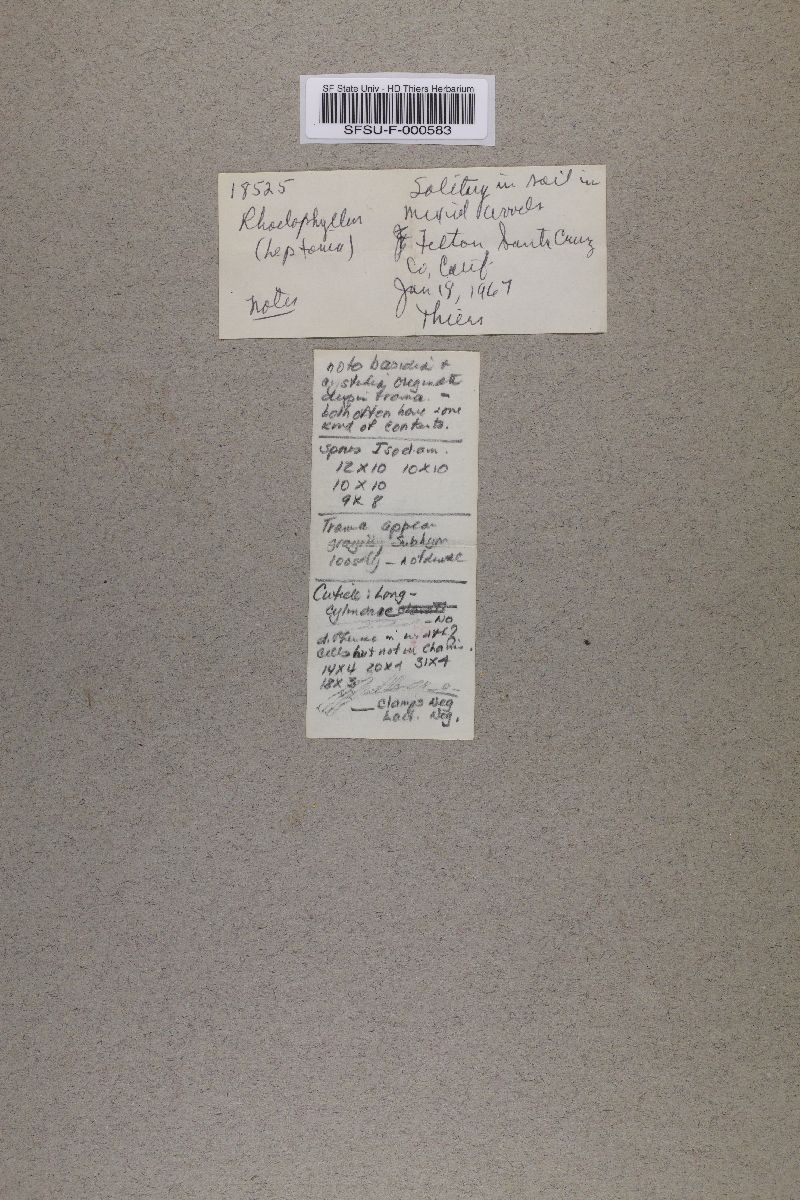 SF State Univ - HD Thiers Herbarium
SFSU-F-000583
18525
Rhodophyllus
(Leptonia)
notes
Solitary in soil in
mixed woods
Felton, Santa Cruz
Co, Calif
Jan 18, 1967
Thiers
note basidia +
cystidia originate
deep in trama. -
both often have same
kind of contents.
Spores Isodiam.
12 x 10 10 x 10
10 x 10
9 x 8
Trama appear
grayish Subhym
loosely - not
Cuticle: Long -
Cylindric
- No
difference in width?
Cells but not in chains.
14x4 20x4 31x4
18x3
- Clamps Neg
Lact. Neg.